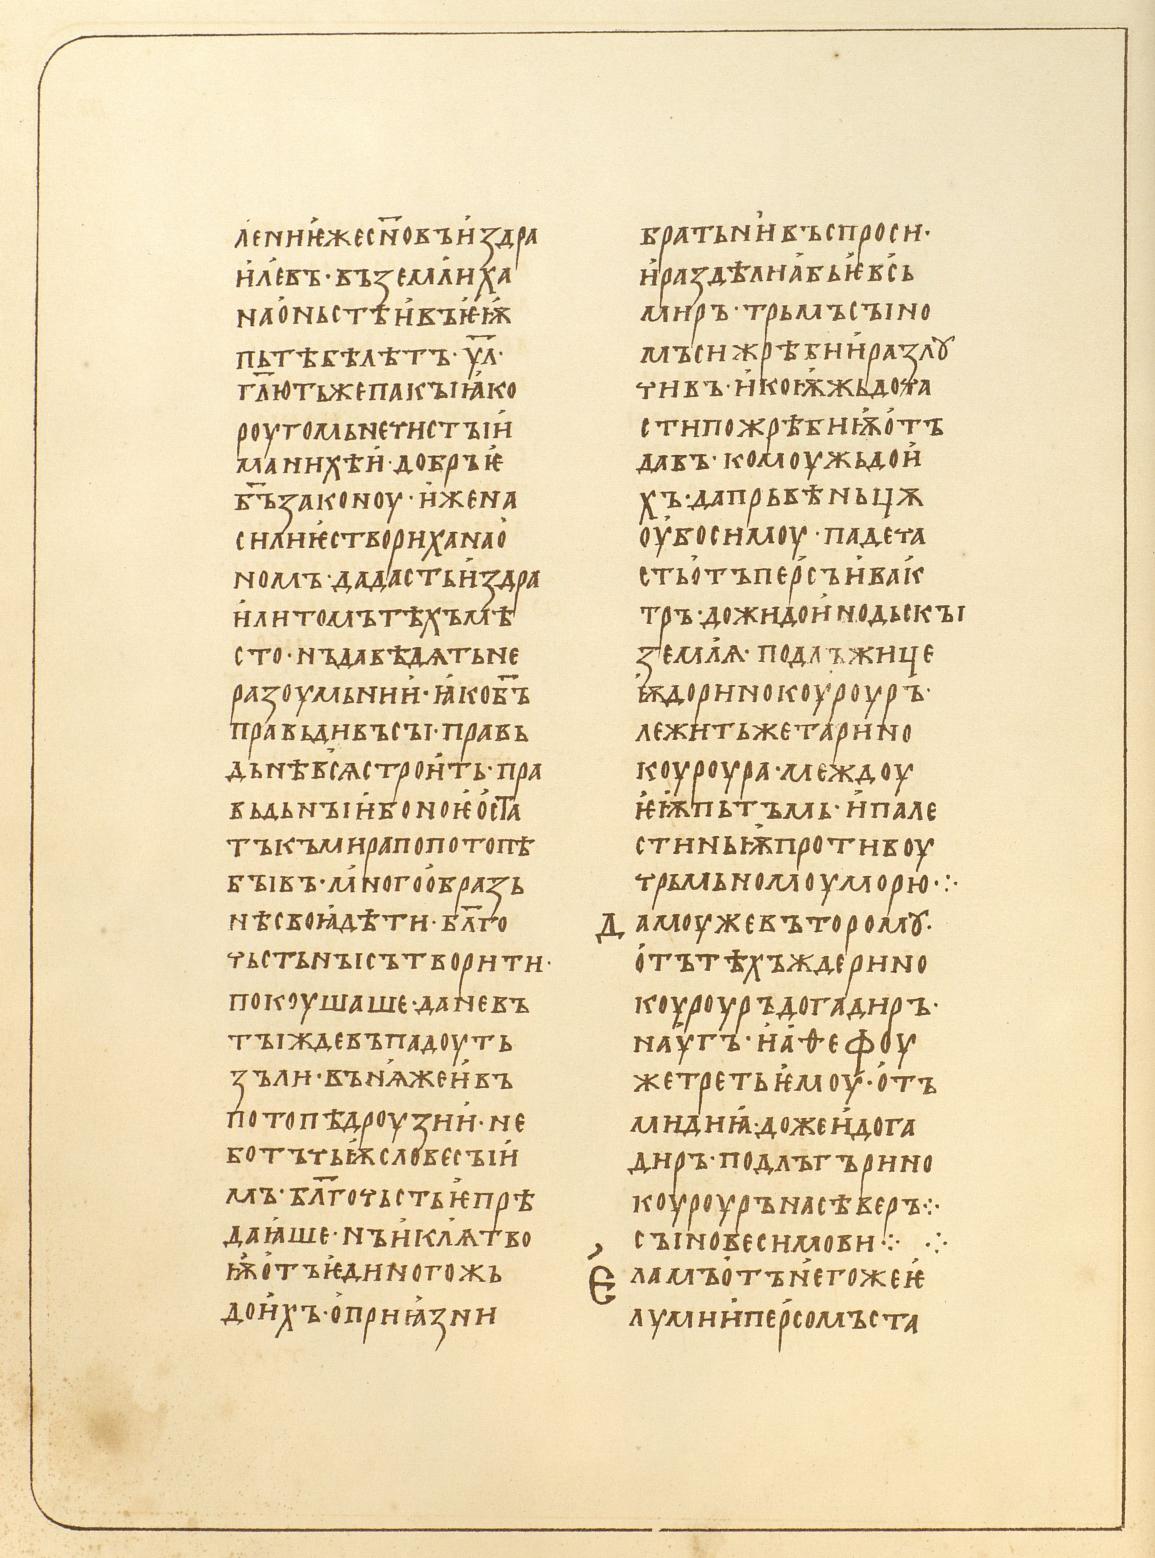 лениѥжесн҃овъиздра
илевъ·въземлиха
наоньстѣивъѥѭ
пьтѣбѣлѣтъ·ѵ҃л·
гл҃ютьжепакыꙗко
роугомьнечистыи
манихѣи·добрыѥ
бъ҃законоу·иженa
силиѥстворихaнaо
номъ·дадастьиздра
илитомътѣхъмѣ
сто·нъдавѣдѧтьне
разоумьнии·ꙗкобъ҃
правьдивъсы·правь
дьнѣвсѧстроить·пра
вьдьныибоноѥоста
тъкъмирапопотопѣ
бывъ·многообразь
нѣсвоꙗдѣти·бл҃го
чьстьнысътворити·
покоушаше·даневъ
тыждевъпадоуть
зъли·вънѧжеивъ
потопѣдроузии·не
ботъчьѭсловесыи
мъ·бл҃гочьстьѥпрѣ
даꙗше·нъиклѧтво
ѭотъѥдиногожь
доихъ·оприꙗзни
братьнивъспроси·
ираздѣлиꙗбьѥвсь
миръ·трьмъсыно
мъсижрѣбииразлꙋ
чивъ·икоѭжьдоча
стипожрѣбиѭотъ
давъ·комоужьдои
хъ·дапрьвѣньцѫ
оубосимоу·падеча
стьотъперсъивак
тръ·дожидоинодьскы
землѧ·подлъжице
ѭдоринокоуроуръ·
лежитьжетарино
коуроура·междоу
ѥѭпьтъмь·ипале
стиньѭпротивоу
чрьмьномоуморю·:·
Дамоужевъторомꙋ·
отътѣхъждерино
коуроуръдогадиръ·
наѵгъ·иаѳефоу
жетретьѥмоу·отъ
мидиꙗ·дожеидога
диръ·подлъгърино
коуроурънасѣверъ:·
сыновесимови·:· ·:·
Єламъотънегожеѥ
лумииперсомъста